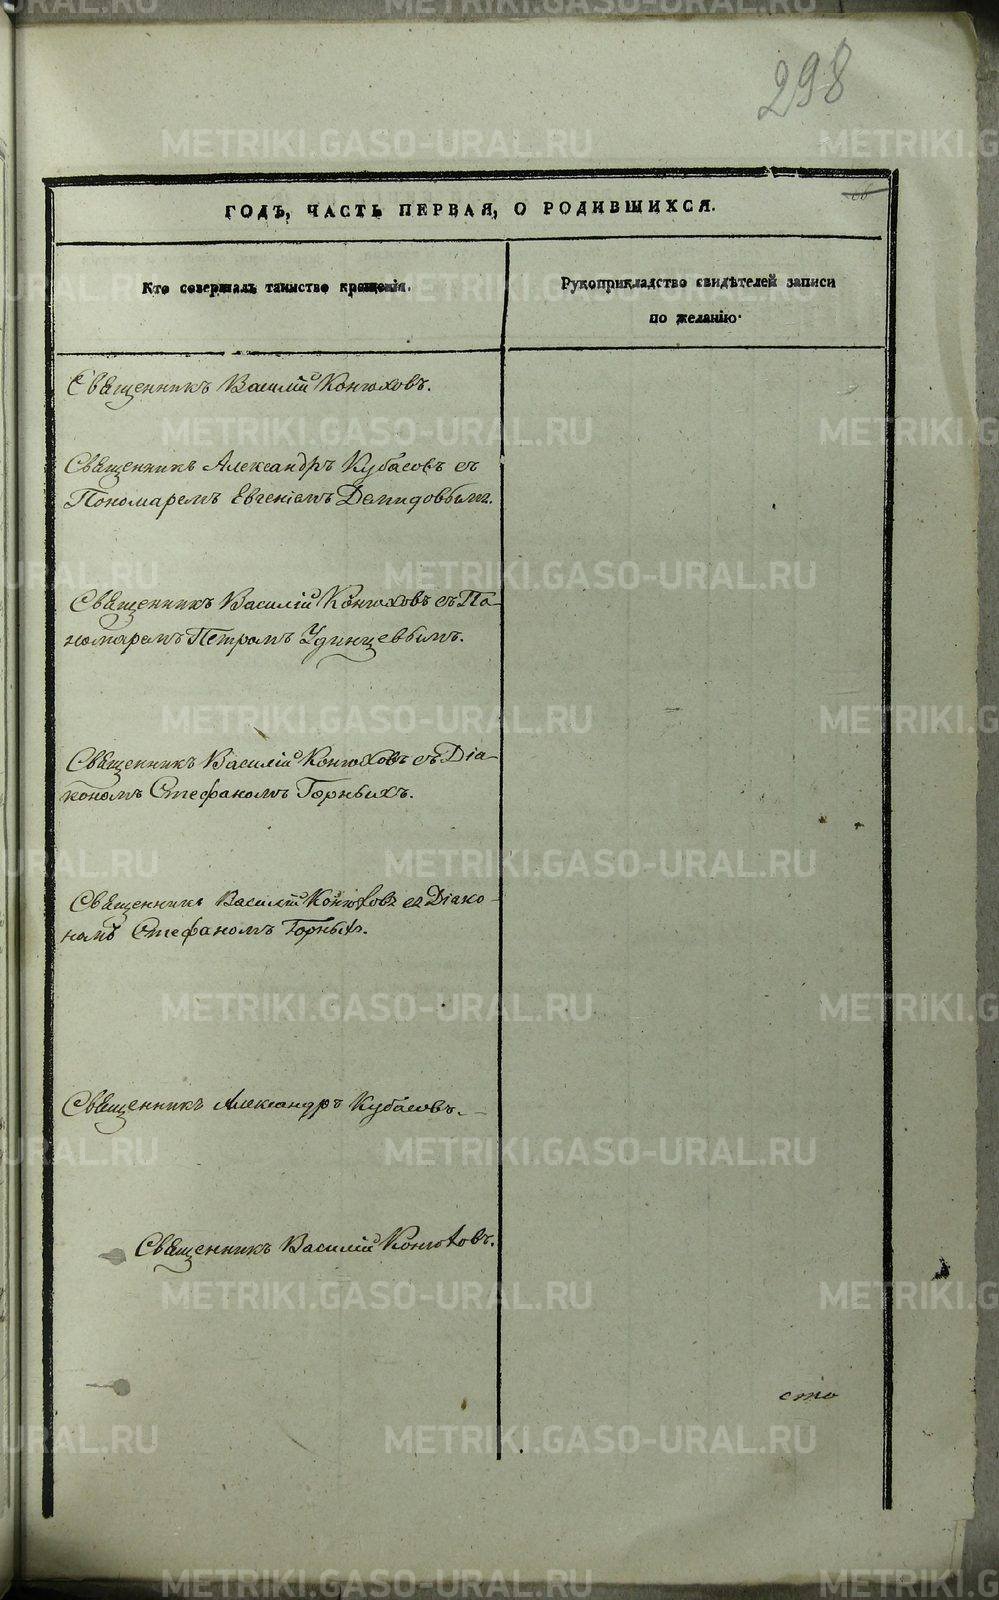 298
ГОДЪ, ЧАСТЬ ПЕРВАЯ, О РОДИВШИХСЯ.
Кто совершалъ таинство крещенія.
Рукоприкладство свидѣтелей записи
по желанію.
Священникъ Василій Конюховъ.
Священникъ Александръ Кубасовъ съ
Пономаремъ Евгеніемъ Демидовымъ.
Священникъ Василій Конюховъ съ По-
номаремъ Петромъ Удинцевымъ.
Священникъ Василій Конюховъ съ Діа-
кономъ Стефаномъ Горныхъ.
Священникъ Василій Конюховъ съ Діако-
номъ Стефаномъ Горныхъ.
Священникъ Александръ Кубасовъ.
Священникъ Василій Конюховъ.
сто
METRIKI.GASO-URAL.RU